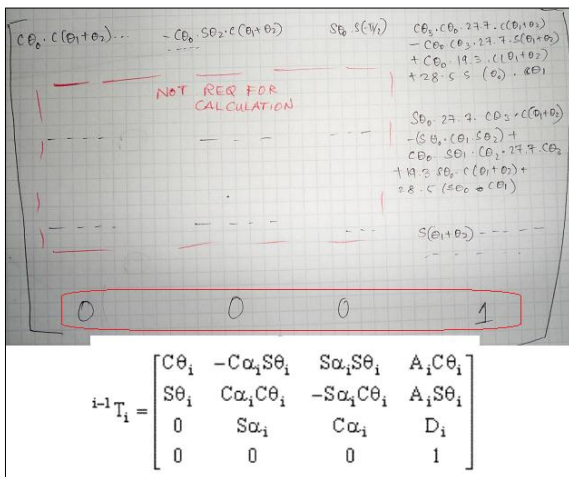 Cθ₀. C(θ₁+θ₂)... - Cθ₀. Sθ₂. C(θ₁+θ₂) Sθ₀. S(-π/2) Cθ₃. Cθ₀. 27.7. C(θ₁+θ₂)
- Cθ₀ Cθ₃. 27.7. S(θ₁+θ₂)
+ Cθ₀. 19.3. C(θ₁+θ₂)
NOT REQ FOR
CALCULATION
Sθ₀. 27.7. Cθ₃. C(θ₁+θ₂)
-(Sθ₀. (Cθ₁ Sθ₂) +
Cθ₀. Sθ₁. Cθ₂. 27.7. Cθ₃
+ 19.3 Sθ₀. C(θ₁+θ₂) +
28.5 (Sθ₀ Cθ₁)
S(θ₁+θ₂) - - - -
0 0 0 1
i-1Tᵢ =
Cθᵢ -CαᵢSθᵢ SαᵢSθᵢ AᵢCθᵢ
Sθᵢ CαᵢCθᵢ -SαᵢCθᵢ AᵢSθᵢ
0 Sαᵢ Cαᵢ Dᵢ
0 0 0 1